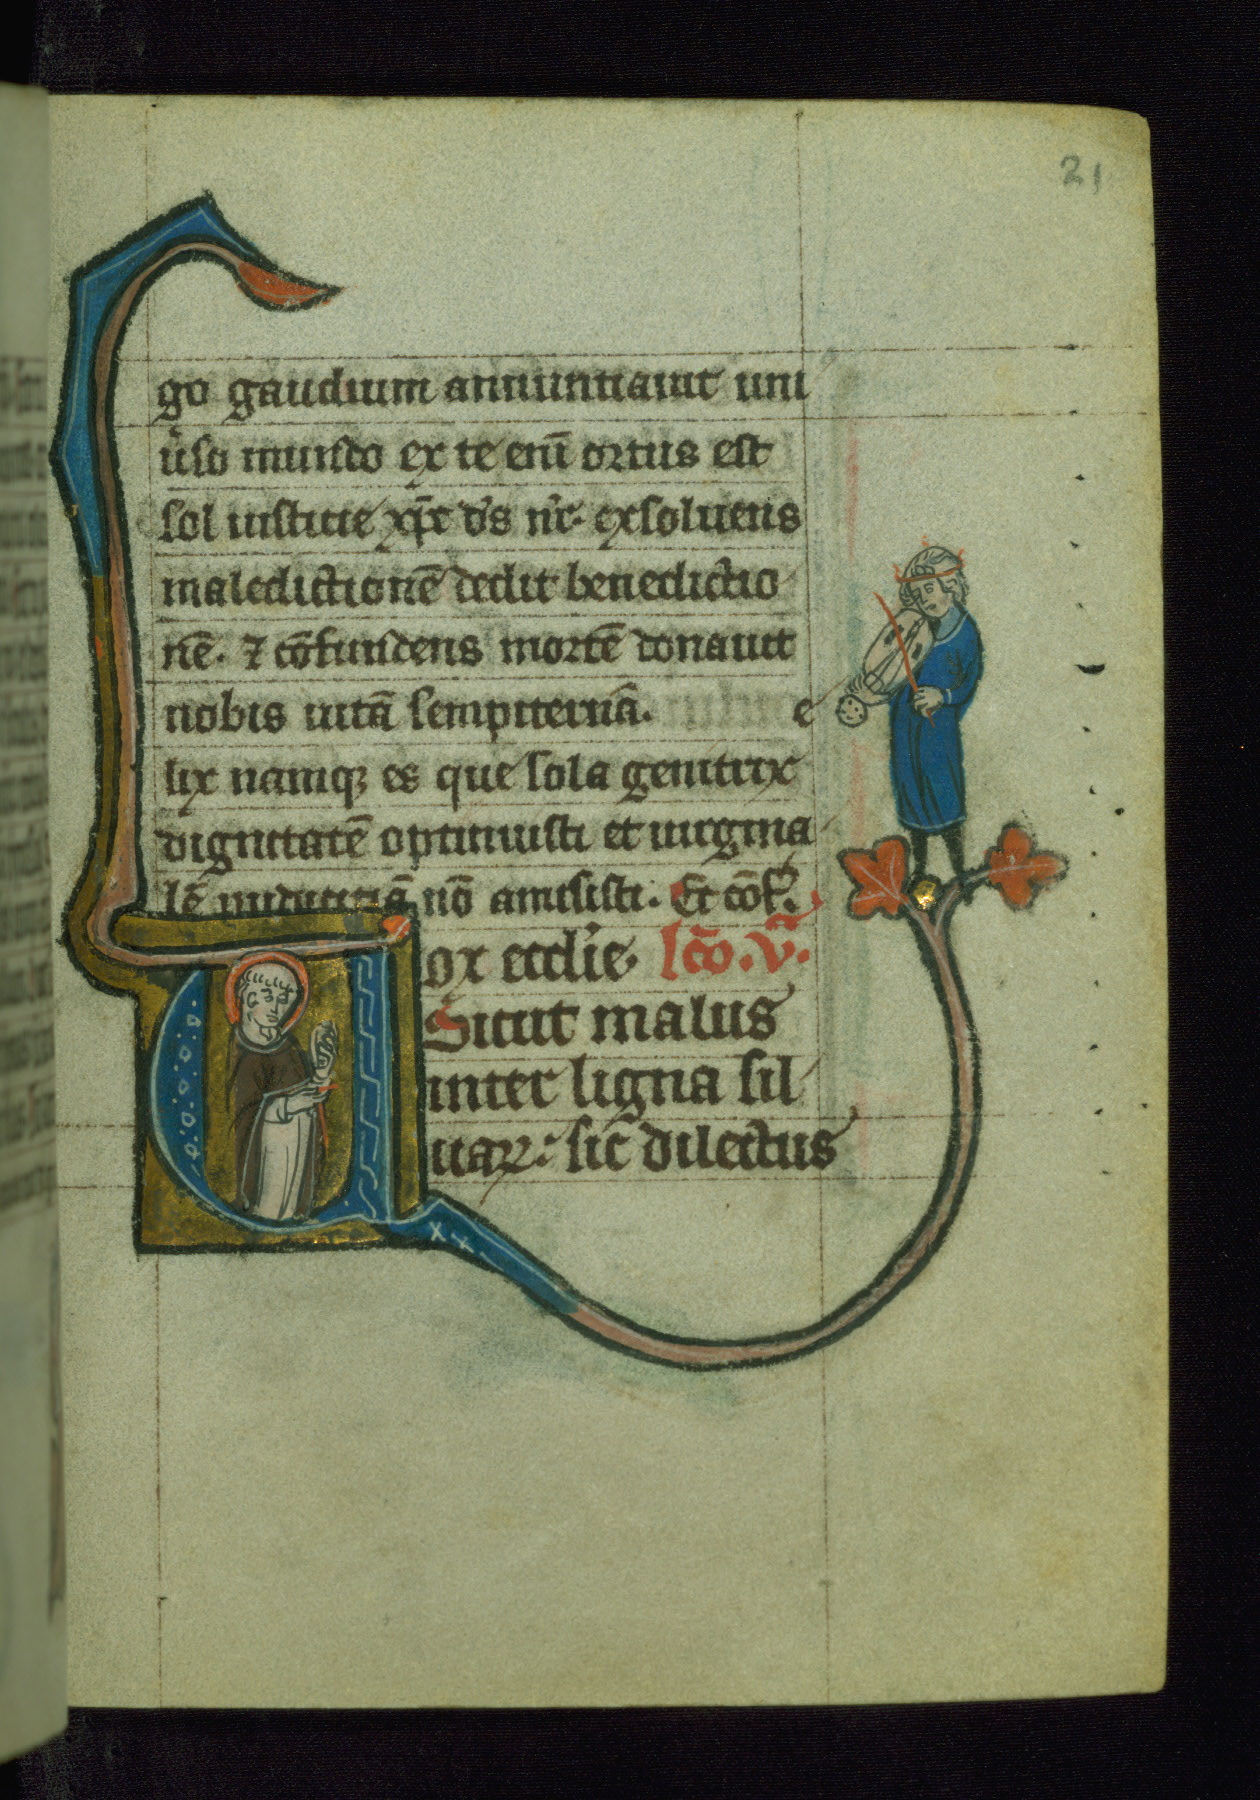 21
go gaudium annuntiauit uni
u̾so mundo ex te eni̅ ortus est
sol iustitie xp̅c d̾s nr̾. exsoluens
maledictione̅ dedit benedictio
ne̅. ⁊ co̅fundens morte̅ donauit
nobis uita̅ sempiterna̅. e
lix namq; es que sola genitrix
dignitate̅ optinuisti et uirgina
le̅ pudicitia̅ no̅ amisisti. Et co̅f̾.
ox eccl̾ie. lc̅o. v̅.
Sicut malus
inter ligna sil
uaꝝ: sic̅ dilectus